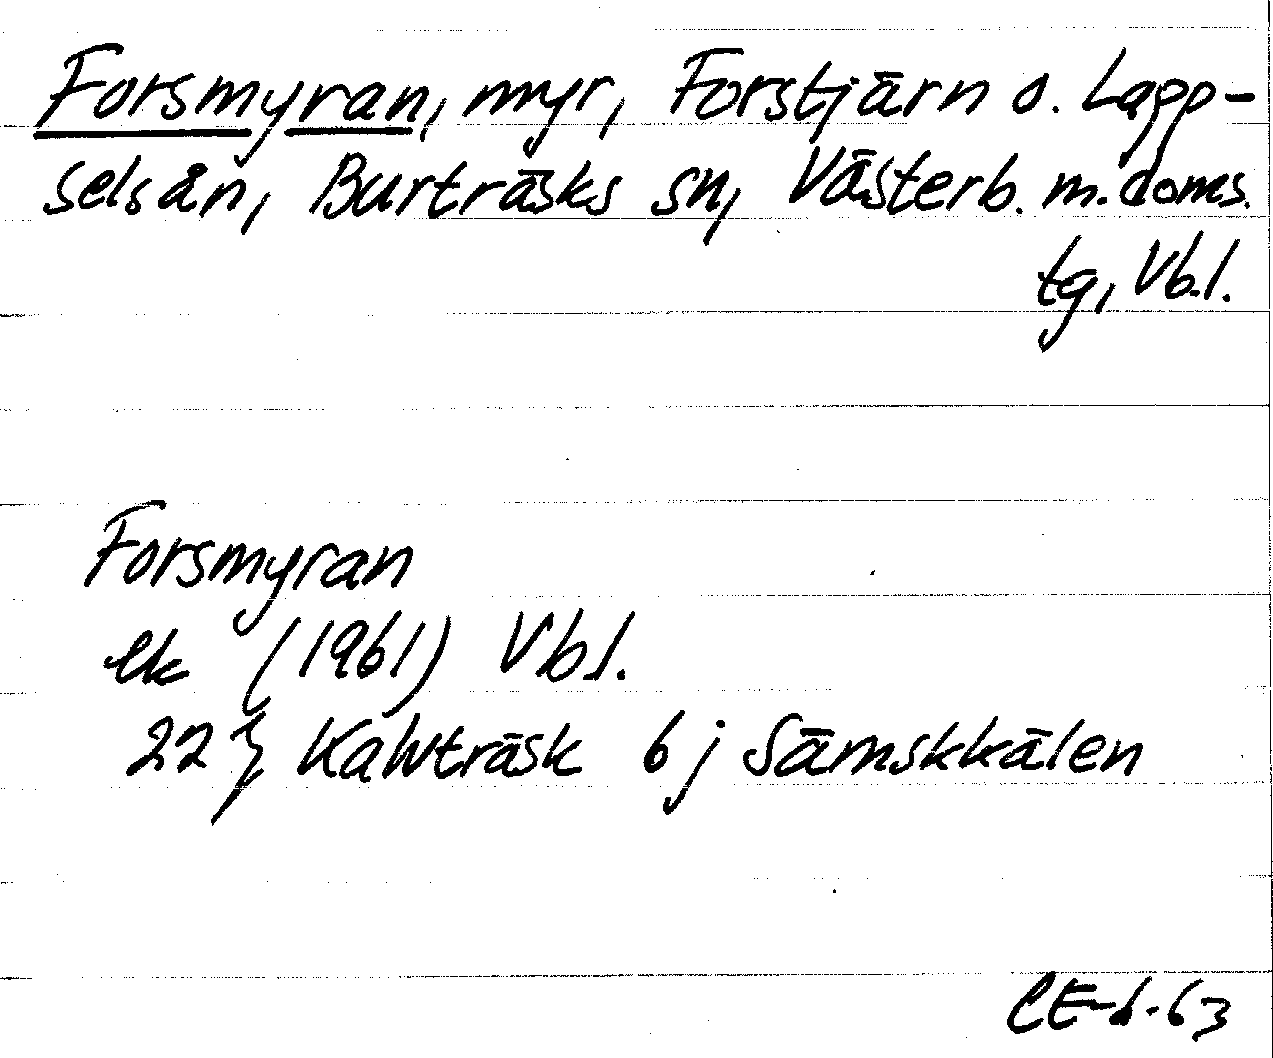 Forsmyran, myr, Forstjärn o. Lapp-
selsån, Burträsks sn, Västerb. m. doms.
tg, Vb.l.
Forsmyran
ek (1961) Vb l.
22 J Kalvträsk 6 j Sämskkålen
CE-6-63